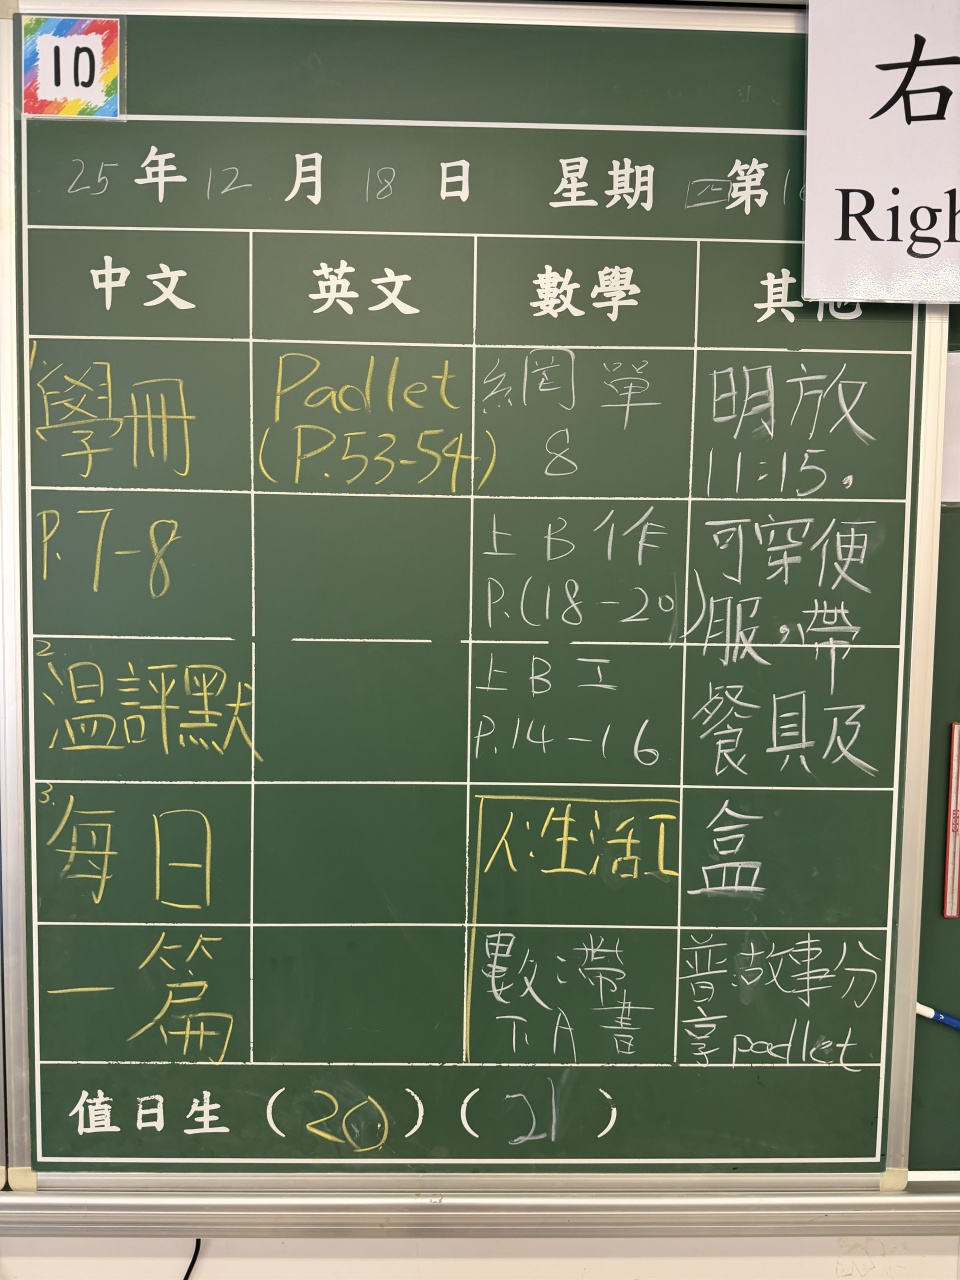 1D
右
Righ
25年12月18日 星期四第1
中文 英文 數學 其他
1.學冊
P.7-8
2.温評默
3.每日
一篇
Padlet
(P.53-54)
網單
8
上B作
P.(18-20)
上B工
P.14-16
人:生活工
數:帶
下A書
明放
11:15,
可穿便
服,帶
餐具及
盒
普:故事分
享padlet
值日生(20)(21)